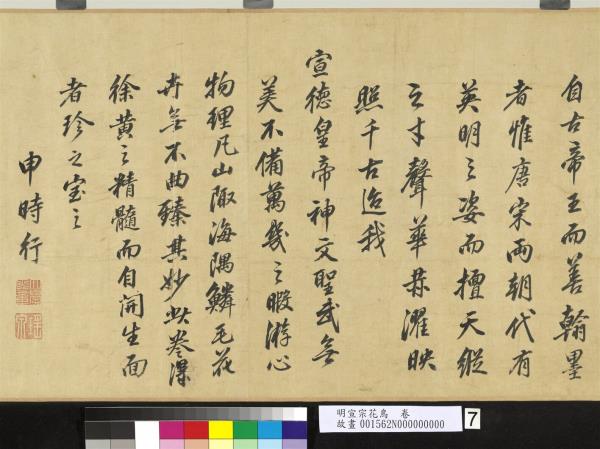 自古帝王而善翰墨
者惟唐宋兩朝代有
英明之姿而擅天縱
之才聲華濯映
照千古迨我
宣德皇帝神文聖武無
美不備萬幾之暇游心
物理凡山陬海隅鱗毛花
卉無不曲臻其妙此卷淂
徐黃之精髓而自開生面
者珍之宝之
申時行
明宣宗花鳥　卷
故畫 001562N000000000
7